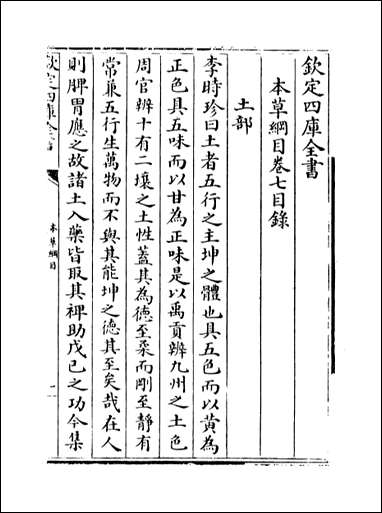 欽定四庫全書
本草綱目卷七目錄
土部
李時珍曰土者五行之主坤之體也具五色而以黃為
正色具五味而以甘為正味是以禹貢辨九州之土色
周官辨十有二壤之土性蓋其為德至柔而剛至静有
常兼五行生萬物而不與其能坤之德其至矣哉在人
則脾胃應之故諸土入藥皆取其裨助戊己之功今集
欽定四庫全書
本草綱目